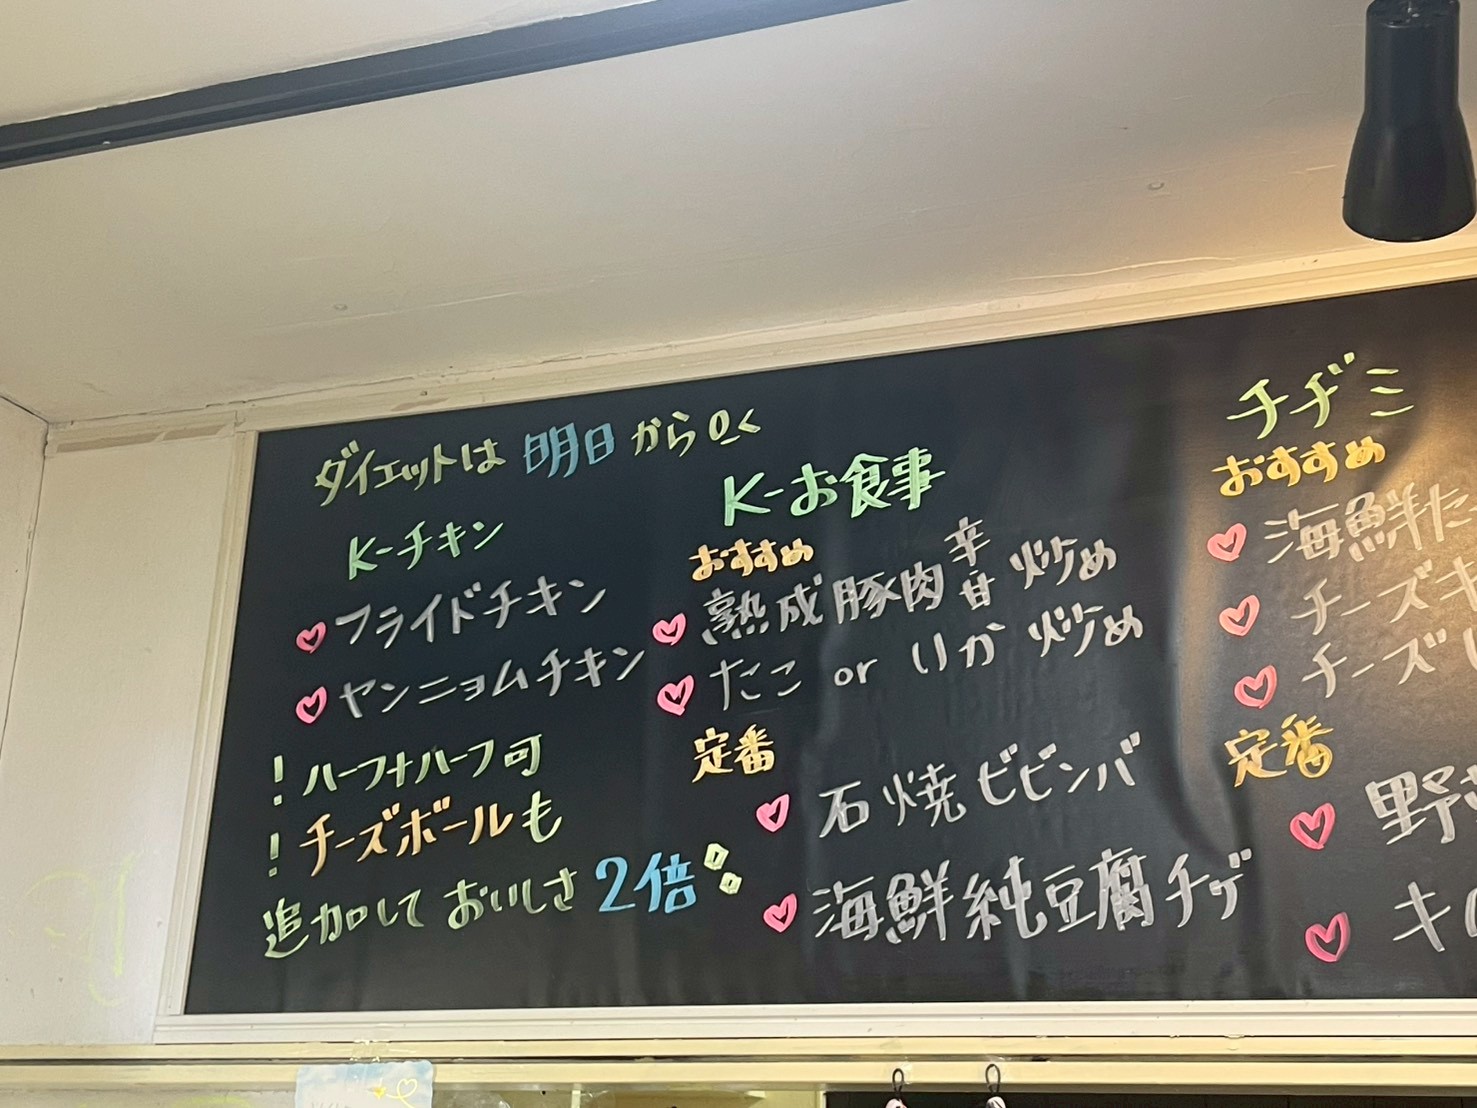 ダイエットは明日から
K-チキン
フライドチキン
ヤンニョムチキン
！ハーフ+ハーフ可
！チーズボールも
追加しておいしさ2倍
K-お食事
おすすめ
熟成豚肉辛甘炒め
たこ or いか 炒め
定番
石焼ビビンバ
海鮮純豆腐チゲ
チヂミ
おすすめ
海鮮た
チーズキ
チーズ
定番
野
キ